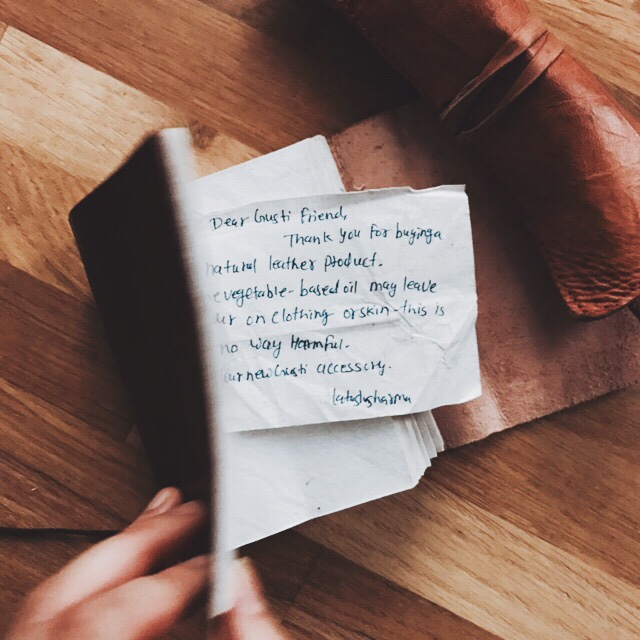 Dear Gusti Friend,
Thank you for buying a
natural leather product.
vegetable-based oil may leave
on clothing or skin this is
no way Harmful.
new Gusti accessory.